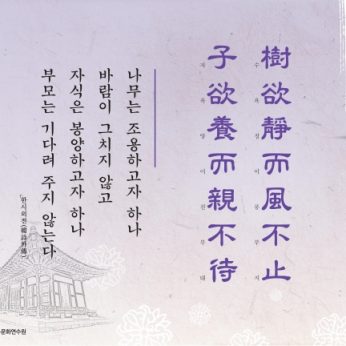 樹欲靜而風不止
수욕정이풍부지
子欲養而親不待
자욕양이친부대
나무는 조용하고자 하나
바람이 그치지 않고
자식은 봉양하고자 하나
부모는 기다려 주지 않는다
한시외전(韓詩外傳)
문화연수원